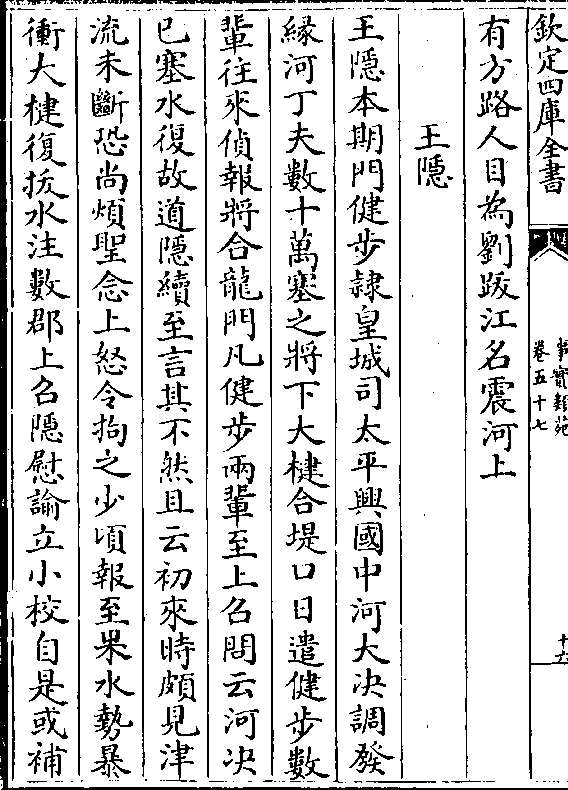 欽定四庫全書
事實類苑
卷五十七
十六
有方路人目為劉跋江名震河上
王隱
王隱本期門健步隷皇城司太平興國中河大决調發
縁河丁夫數十萬塞之將下大楗合堤口日遣健步數
輩往來偵報將合龍門凡健步兩輩至上召問云河决
已塞水復故道隱續至言其不然且云初來時頗見津
流未斷恐尚煩聖念上怒令拘之少頃報至果水勢暴
衝大楗復拔水注數郡上召隱慰諭立小校自是或補